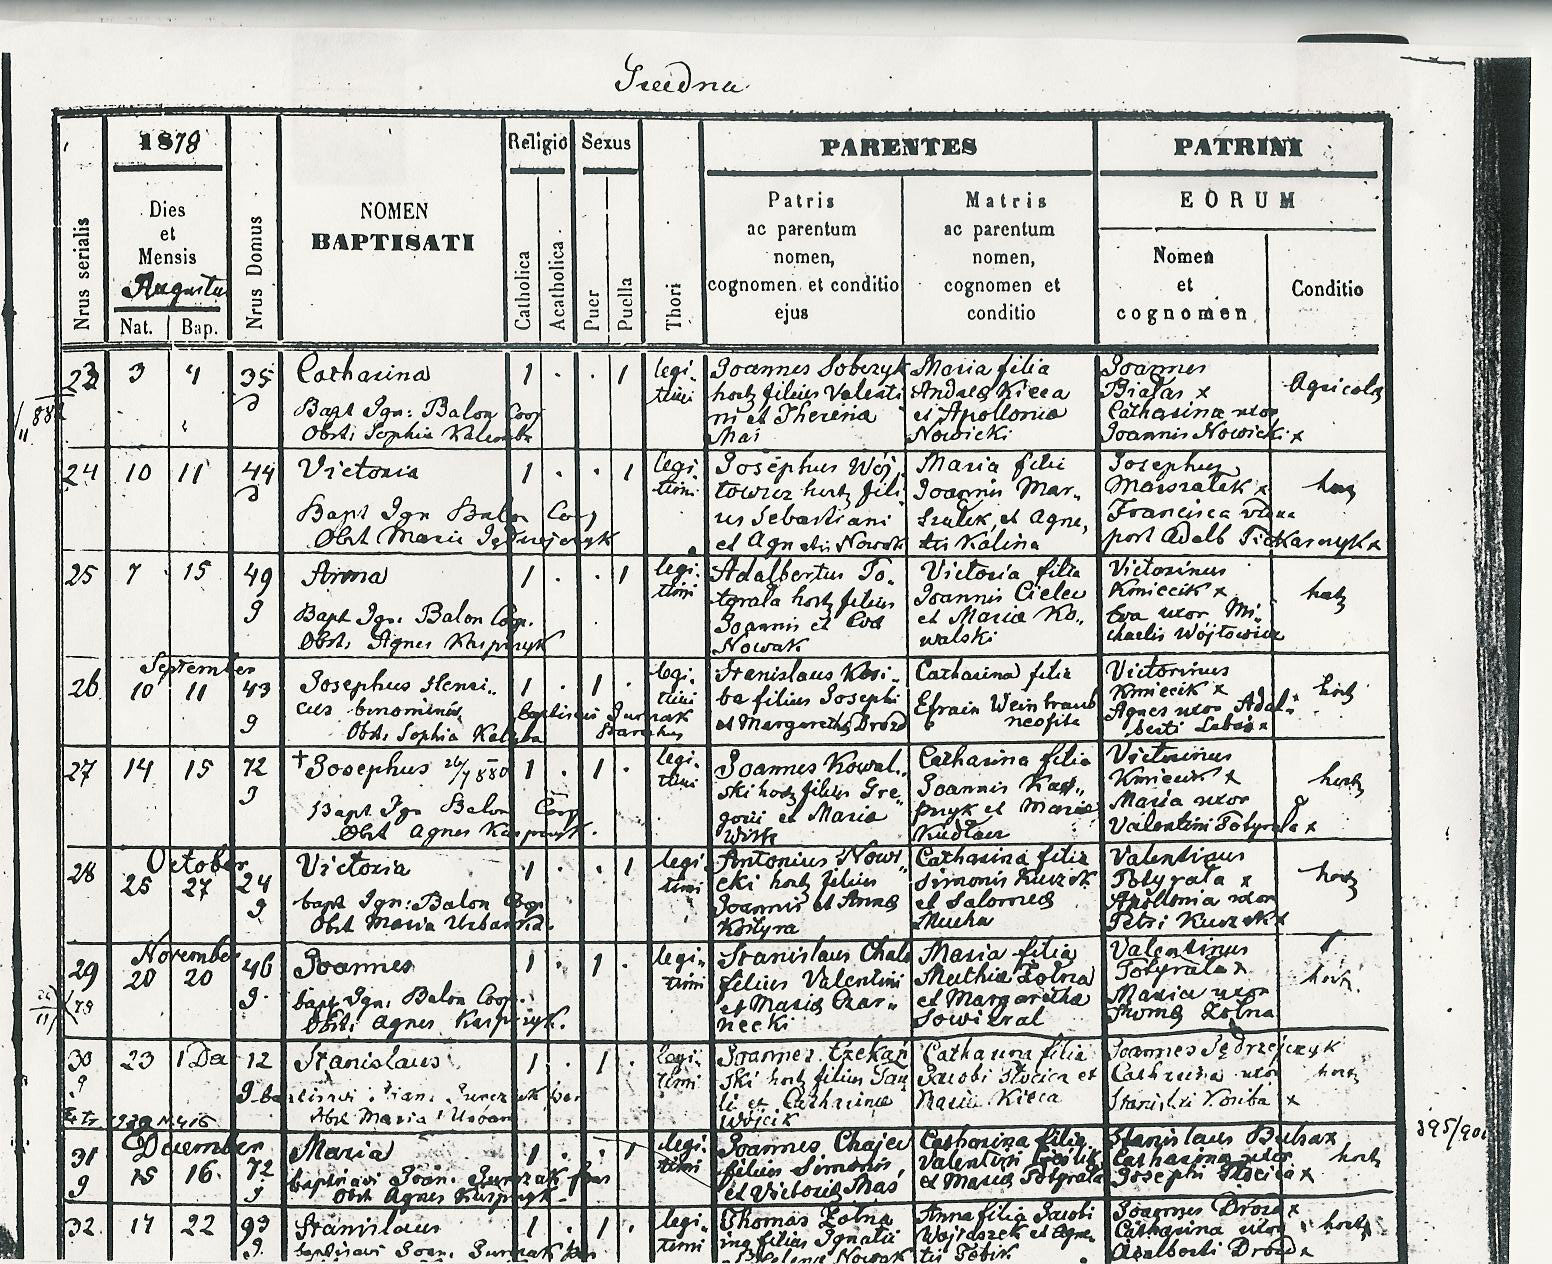 1878
Religio
Sexus
PARENTES
PATRINI
Nrus serialis
Dies
et
Mensis
Augustus
Nat.
Bap.
Nrus Domus
NOMEN
BAPTISATI
Catholica
Acatholica
Puer
Puella
Thori
Patris
ac parentum
nomen,
cognomen et conditio
ejus
Matris
ac parentum
nomen,
cognomen et
conditio
EORUM
Nomen
et
cognomen
Conditio
23 3 4 35
Catharina
Bapt Ign: Balon Coop
Obst. Sophia Kalemba
1 . . 1
legi-
timi
Joannes Sobczyk
hort filius Valenti
ni et Theresia
Maś
Maria filia
Andreæ Kieca
et Apollonia
Nowicki
Joannes
Białas x
Catharina uxor
Joannis Nowicki x
Agricola
24 10 11 44
Victoria
Bapt Ign Balon Coop
Obst Maria Jędrzejczyk
1 . . 1
legi-
timi
Josephus Wój-
towicz hort fili-
us Sebastiani
et Agnetis Nowak
Maria filia
Joannis Mar-
szalek et Agne-
tis Kalina
Josephus
Marszalek x
Francisca vidua
post Adalb
hort
25 7 15 49
Anna
Bapt Ign: Balon Coop.
Obst. Agnes Kasprzyk
1 . . 1
legi-
timi
Adalbertus Po-
tyrała hort filius
Joannis et Eva
Nowak
Victoria filia
Joannis Cielec
et Maria Ko-
walski
Victorinus
Kmiecik x
Eva uxor Mi-
chaelis Wójtowicz
hort
September
26 10 11 43
Josephus Henri-
cus binominis
baptisavi
Obst. Sophia
1 . 1 .
legi-
timi
Stanislaus Kosi-
ba filius Josephi
et Margaretha Drozd
Catharina filia
Efrain Weintraub
neofita
Victorinus
Kmiecik x
Agnes uxor Adal-
berti
hort
27 14 15 72
† Josephus
Bapt Ign Balon Coop
Obst Agnes Kasprzyk.
1 . 1 .
legi-
timi
Joannes Kowal-
ski hort filius Gre-
gorii et Maria
Catharina filia
Joannis Kasp-
przyk et Maria
Victorinus
Kmiecik x
Maria uxor
Valentini Potyrała x
hort
October
28 25 27 24
Victoria
bapt Ign: Balon Coop
Obst Maria
1 . . 1
legi-
timi
Antonius Nowi-
cki hort filius
Joannis et Anna
Kostyra
Catharina filia
Simonis
et Salomea
Mucha
Valentinus
Potyrała x
Apollonia uxor
Petri
hort
November
29 20 20 46
Joannes
bapt Ign: Balon Coop.
Obst. Agnes Kasprzyk.
1 . 1 .
legi-
timi
Stanislaus
filius Valentini
et Maria Czar-
necki
Maria filia
Mathia Żolna
et Margaretha
Sowizral
Valentinus
Potyrała x
Maria uxor
Thoma Żolna
hort.
30 23 1 Dec 12
Stanislaus
Obst Maria
1 . 1 .
legi-
timi
Joannes Czekań
ski hort filius Pau
li et Catharina
Wójcik
Catharina filia
Jacobi Słocica et
Maria Kieca
Joannes Jędrzejczyk
Catharina uxor
Stanislai Kosiba x
hort
December
31 15 16 72
Maria
baptisavi Joan.
Obst Agnes Kasprzyk
1 . . 1
legi-
timi
Joannes
filius Simonis
et Victoria Maś
Catharina filia
Valentini
et Maria Potyrała
Stanislaus
Catharina uxor
Josephi Słocica x
hort
395/90
32 17 22 93
Stanislaus
baptisavi Joan.
1 . 1 .
legi-
timi
Thomas Żolna
filius Ignatii
Nowak
Anna filia Jacobi
Wojtaszek et Agne-
tis
Joannes Drozd x
Catharina uxor
Adalberti Drozd x
hort